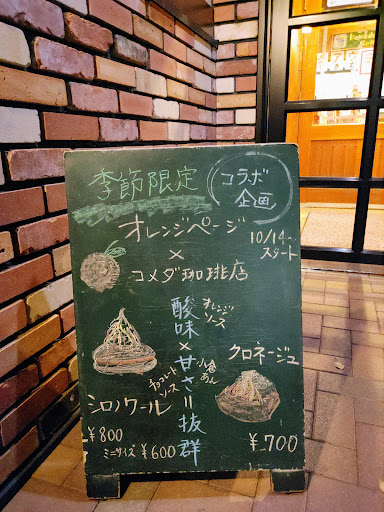 季節限定
コラボ
企画
オレンジページ
×
コメダ珈琲店
10/14~
スタート
酸味×甘さ=抜群
オレンジ
ソース
小倉
あん
チョコレート
ソース
シロノワール
¥800
ミニサイズ ¥600
クロネージュ
¥700